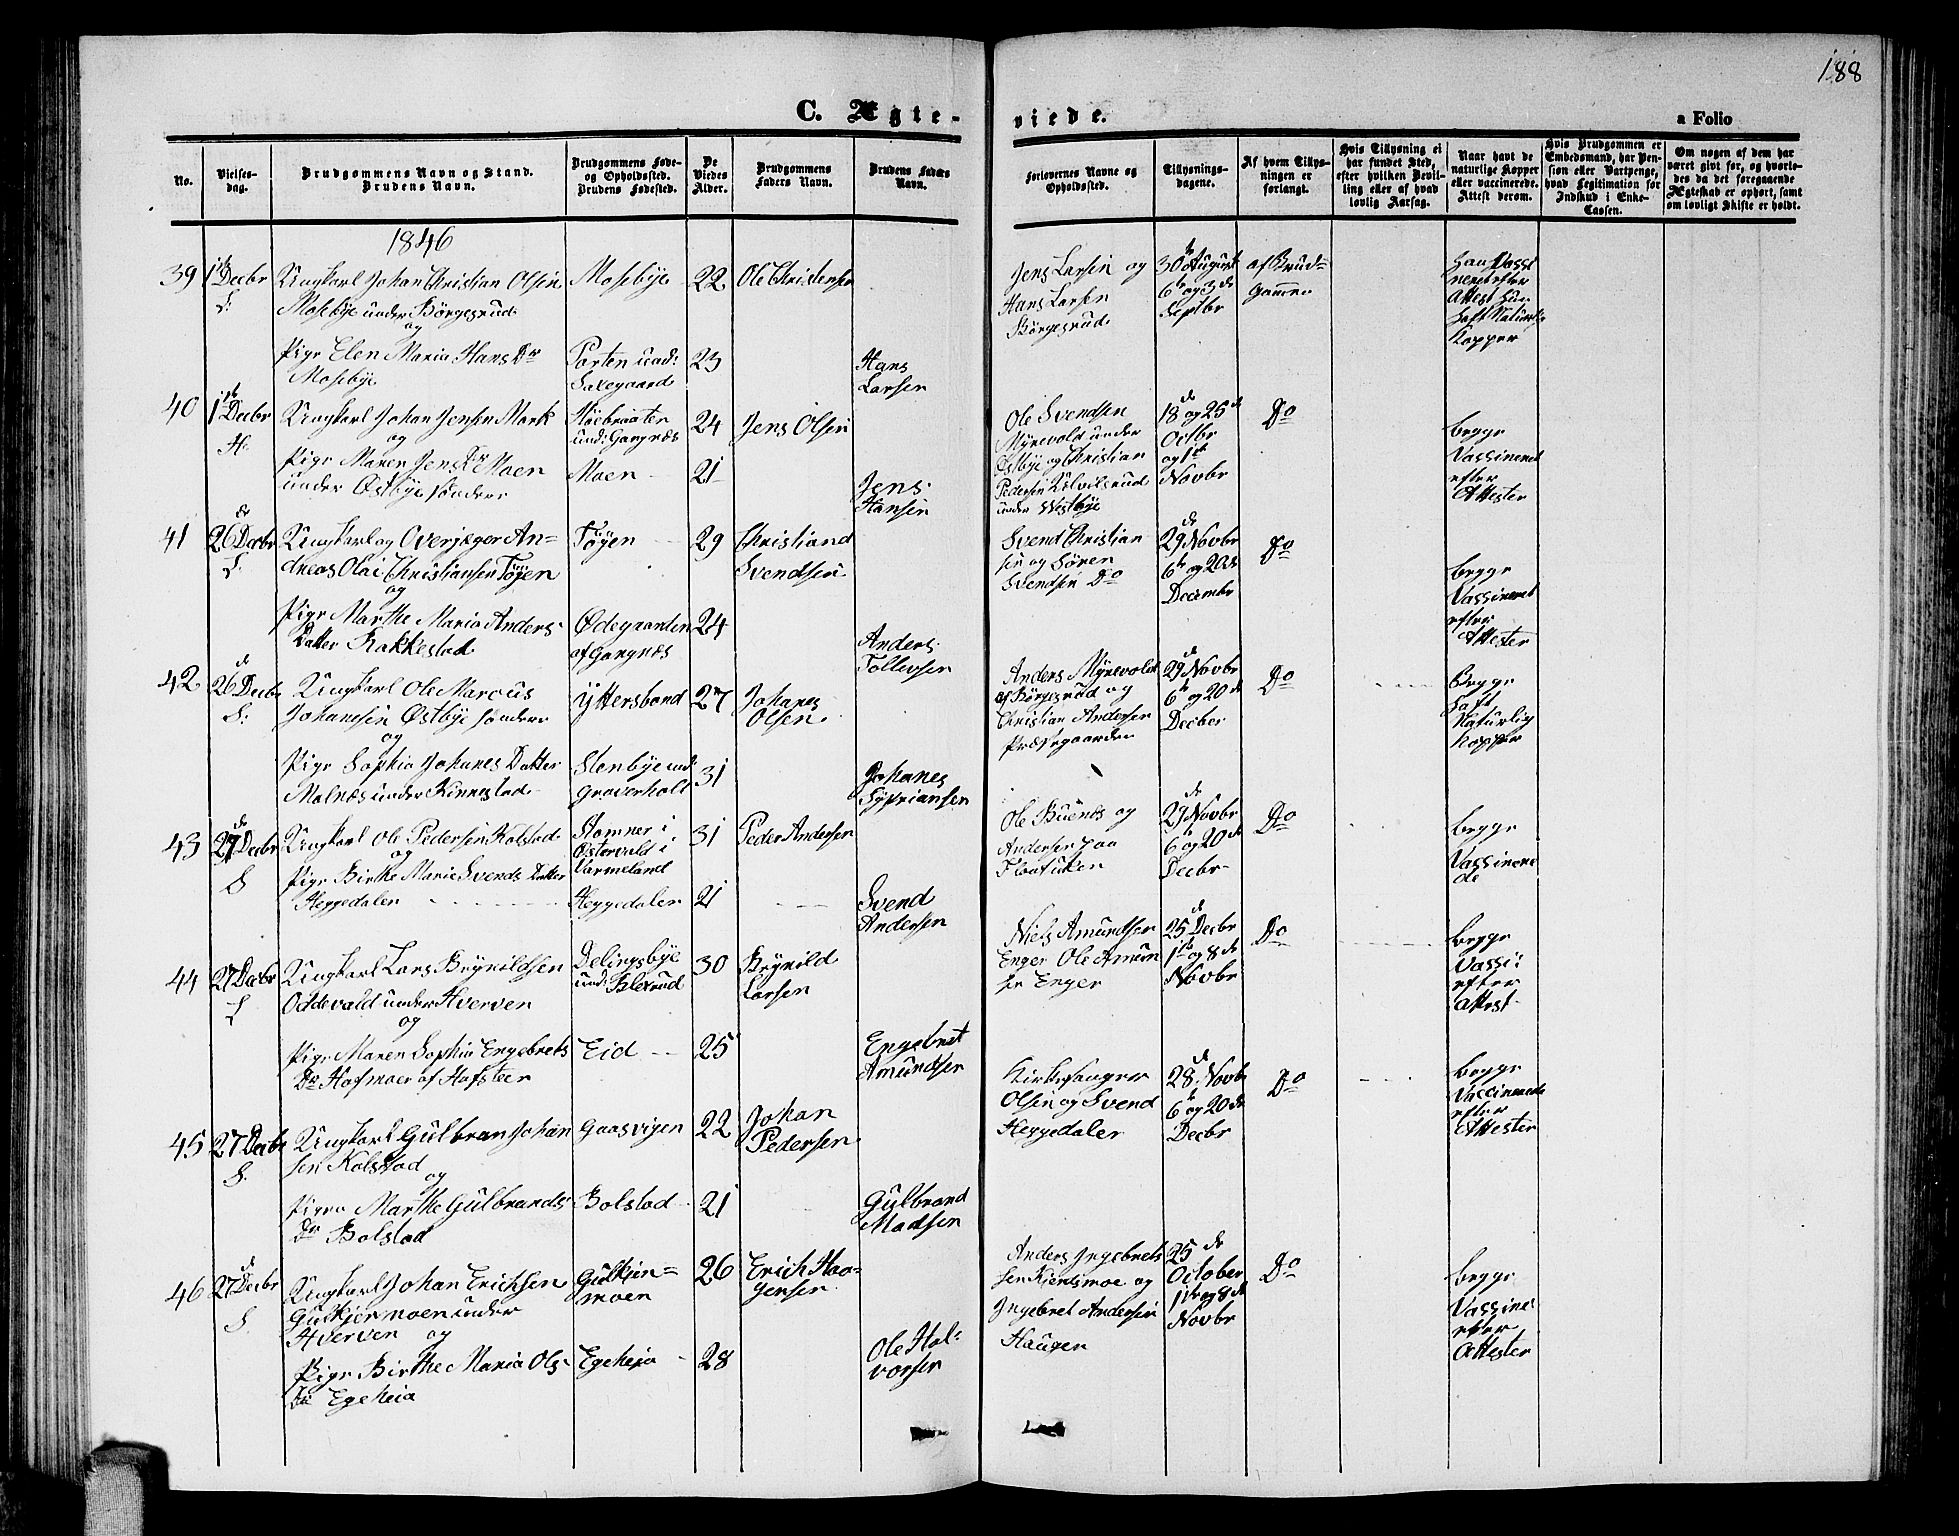 188
C. Ægte-
viede.
a Folio
No.
Vielses-
dag.
Brudgommens Navn og Stand.
Brudens Navn.
Brudgommens Føde-
og Opholdssted.
Brudens Fødested.
De
Viedes
Alder.
Brudgommens
Faders Navn.
Brudens Faders
Navn.
Forlovernes Navne og
Opholdssted.
Tillysnings-
dagene.
Af hvem Tillys-
ningen er
forlangt.
Hvis Tillysning ei
har fundet Sted,
efter hvilken Bevil-
ling eller af hvad
lovlig Aarsag.
Naar havt de
naturlige Kopper
eller vaccinerede.
Attest derom.
Hvis Brudgommen er
Embedsmand, har Pen-
sion eller Vartpenge,
hvad Legitimation for
Indskud i Enke-
Cassen.
Om nogen af dem har
været givt før, og hvorle-
des da det foregaaende
Ægteskab er ophørt, samt
om lovligt Skifte er holdt.
1846
39
1ste Decbr
S.
Ungkarl Johan Christian Olsen
Mosebye under Børgesrud
og
Pige Elen Maria Hans Dr
Mosebye
Mosebye
Porten und:
Saxegaard
22
23
Ole Christensen
Hans
Larsen
Jens Larsen og
Hans Larsen
Börgesrud
30te August
6te og 3de
Septbr
af Brud-
gommen
Han Vassi
neret efter
Attest Hun
haft Naturlige
Kopper
40
1ste Decbr
H.
Ungkarl Johan Jensen Mork
og
Pige Maren Jens Dr Moen
under Østbye søndere
Høebraaten
und: Gangnæs
Moen
24
21
Jens Olsen
Jens
Hansen
Ole Svendsen
Myrevold under
Østbye og Christian
Pedersen
under Westbye
18 og 25de
Octbr
og 1ste
Novbr
Do
begge
Vassineret
efter
Attester
41
26de Decbr
S.
Ungkarl og Overjæger An-
dreas Olai Christiansen Tøyen
og
Pige Marthe Maria Anders
Datter Rakkestad
Tøyen
Ødegaarden
af Gangnæs
29
24
Christiand
Svendsen
Anders
Tollevsen
Svend Christian
sen og Søren
Svendsen Do
29de Novbr
6te og 20de
Decembr
Do
begge
Vassineret
efter
Attester
42
26de Decbr
S:
Ungkarl Ole Marcus
Johansen Østbye søndere
og
Pige Sophia Johanes Datter
Molnæs under Kinnestad
Yttersband
Stenbye und:
Graverholt
27
31
Johanes
Olsen
Johanes
Syprians​en
Anders Myrevold
af Børgesrud og
Christian Andersen
Præstegaarden
29de Novbr
6te og 20de
Decber
Do
Begge
haft
Naturlig
Kopper
43
27de Decbr
S
Ungkarl Ole Pedersen Kolstad
og
Pige Birthe Marie Svends Datter
Heggedalen
Stomner i
Østervald i
Varmeland
Heggedalen
31
21
Peder Andersen
Svend
Andersen
Ole Buenes og
Andersen paa
29de Novbr
6 og 20de
Decbr
Do
begge
Vassinere
de
44
27 Decbr
S
Ungkarl Lars Brynildsen
Oddevald under Hverven
og
Pige Maren Sophia Engebrets
Dr Hofmoen af Hofsteer
Delingsbye
und: Blexrud
Eid
30
25
Brynild
Larsen
Engebret
Amundsen
Niels Amundsen
Enger Ole Amun
sen Enger
25de Decbr
1ste og 8de
Novbr
Do
begge
Vassi:
efter
Attest
45
27 Decbr
S.
Ungkarl Gulbran Johan
sen Kolstad
og
Pige Marthe Gulbrands
Dr Bolstad
Gaasvigen
Bolstad
22
21
Johan
Pedersen
Gulbrand
Madsen
Kirkesanger
Olsen og Svend
Heggedalen
28de Novbr
6te og 20de
Decbr
Do
begge
Vaccinerede
efter
Attester
46
27de Decbr
S.
Ungkarl Johan Erichsen
Gulkjernmoen under
Hverven og
Pige Birthe Maria Ols
Dr Egeheia
Gulkjern=
moen
Egeheia
26
28
Erich Haa=
gensen
Ole Hal-
vorsen
Anders Ingebrets
sen Kiensmoe og
Ingebret Andersen
Haugen
25de
October
1ste og 8de
Novbr
Do
begge
Vassine:
efter
Attester